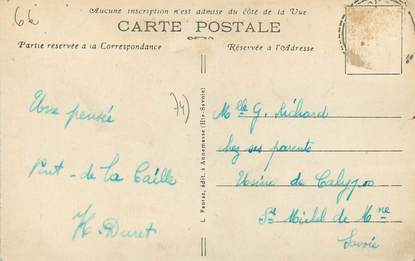 6€
Aucune inscription n'est admise du côté de la Vue
CARTE POSTALE
Partie réservée à la Correspondance
Réservée à l'Adresse
74)
Une pensée
Pont-de la Caille
K. Duret
L. Fauraz, édit. à Annemasse (Hte-Savoie)
Mlle G. Richard
chez ses parents
Usine de Calypso
St Michel de Mne
Savoie